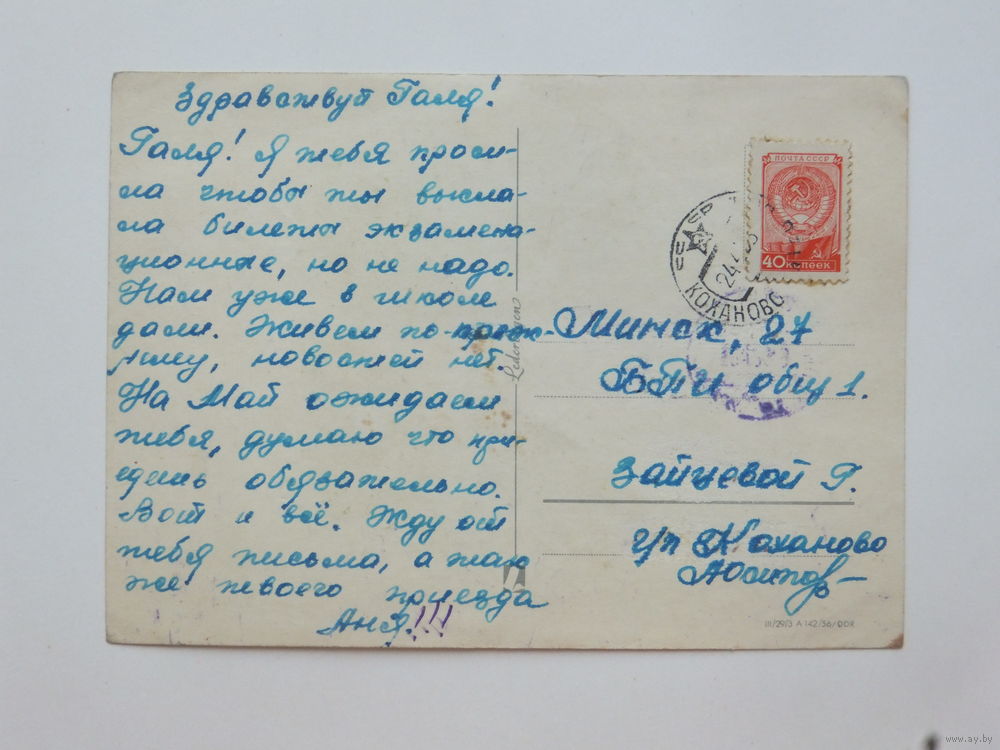 Здравствуй Галя!
Галя! Я тебя проси-
ла чтобы ты высла-
ла билеты экзамена-
ционные, но не надо.
Нам уже в школе
дали. Живем по-преж-
нему, новостей нет.
На Май ожидаем
тебя, думаю что при-
едешь обязательно.
Вот и всё. Жду от
тебя письма, а так
же твоего приезда
Аня!!!
ПОЧТА СССР
40 КОПЕЕК
СССР
24
КОХАНОВО
Минск, 27
БПИ общ 1.
Зайцевой Г.
г/п Коханово
III/29/3 A 142/56/DDR
www.ay.by